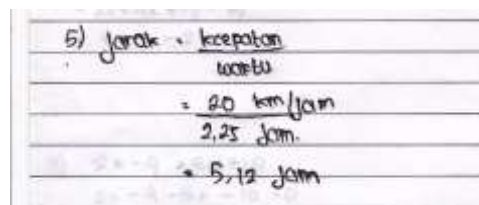 5) Jarak = kecepatan
waktu
= 20 km/jam
2,25 Jam.
= 5,12 Jam